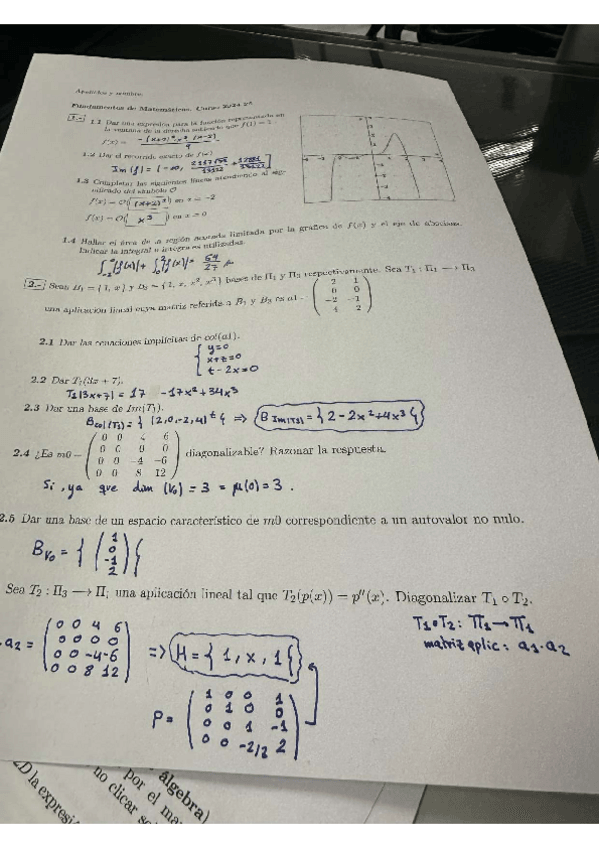 Apellidos y nombre:
Fundamentos de Matemáticas. Curso
1.- 1.1 Dar una expresión para la función representada en
la ventana de la derecha sabiendo que f(1) = 1.
f(x) = -(x+2)² x³ (x-2) / 9
1.2 Dar el recorrido exacto de f(x)
Im(f) = (-∞,
1.3 Completar las siguientes líneas atendiendo al sig-
nificado del símbolo O
f(x) = O( (x+2)² ) en x = -2
f(x) = O( x³ ) en x = 0
1.4 Hallar el área de la región acotada limitada por la gráfica de f(x) y el eje de abscisas.
Indicar la integral o integrales utilizadas.
∫₋₂⁰|f(x)| + ∫₀²|f(x)| = 64/27
2.- Sean B₁ = {1, x} y B₃ = {1, x, x², x³} bases de Π₁ y Π₃ respectivamente. Sea T₁ : Π₁ → Π₃
una aplicación lineal cuya matriz referida a B₁ y B₃ es a1 = ( 2 1
0 0
-2 -1
4 2 )
2.1 Dar las ecuaciones implícitas de col(a1).
{ y=0
x+z=0
t-2x=0
2.2 Dar T₁(3x + 7).
T₁(3x+7) = 17 -17x²+34x³
2.3 Dar una base de Im(T₁).
B col(T₁) = { (2,0,-2,4)ᵗ } ⇒ B Im(T₁) = { 2-2x²+4x³ }
2.4 ¿Es m0 = ( 0 0 4 6
0 0 0 0
0 0 -4 -6
0 0 8 12 ) diagonalizable? Razonar la respuesta.
Si, ya que dim (V₀) = 3 = μ(0) = 3.
2.5 Dar una base de un espacio característico de m0 correspondiente a un autovalor no nulo.
B V₀ = { ( 1
0
-1
2 ) }
Sea T₂ : Π₃ → Π₁ una aplicación lineal tal que T₂(p(x)) = p''(x). Diagonalizar T₁ ∘ T₂.
T₁∘T₂: Π₁→Π₁
matriz aplic: a₁·a₂
·a₂ = ( 0 0 4 6
0 0 0 0
0 0 -4 -6
0 0 8 12 ) ⇒ H = { 1, x, 1 }
P = ( 1 0 0 1
0 1 0 0
0 0 1 -1
0 0 -2/3 2 )
álgebra)
por el
no clicar
2D la expresi